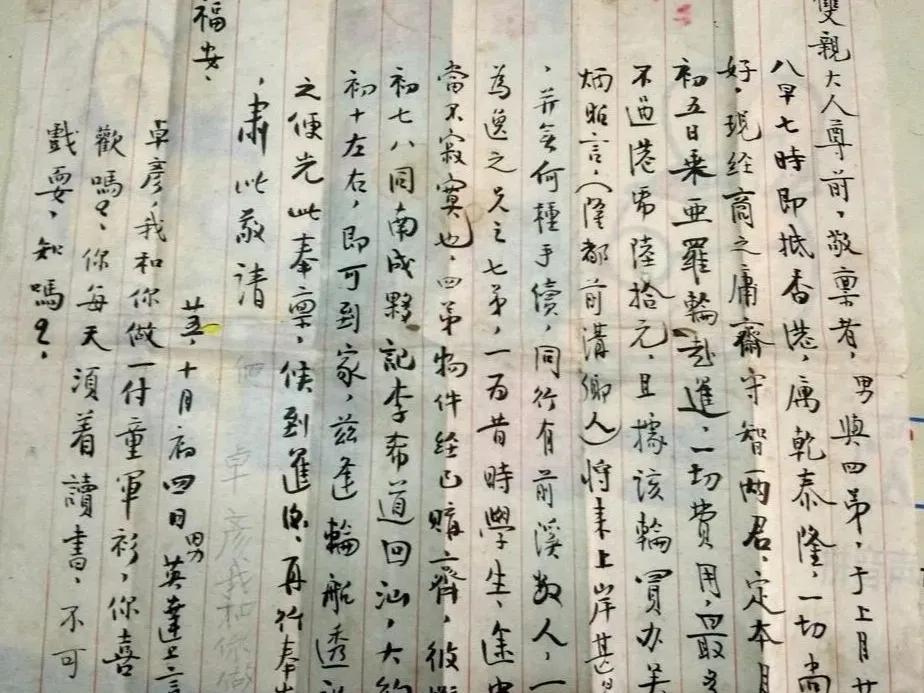 雙親大人尊前，敬禀者，男與四弟，于上月廿
八早七時即抵香港，寓乾泰隆，一切尚
好，現経商之庸齋守智兩君，定本月
初五日乘亜羅輪赴暹，一切費用，最多
不過港币陸拾元，且據該輪買办吳
炳昭言，（隆都前溝鄉人）將来上岸甚
，并無何種手續，同行有前溪数人，一
為逸之兄之七弟，一为昔時學生，途中
當不寂寞也，四弟物件経已購齊，彼
初七八同南成夥記李希道回汕，大約
初十左右，即可到家，兹逢輪船透
之便先此奉禀，候到暹後，再行奉
，肃此敬请
福安，
十月初四日 男英達上言
卓彥，我和你做一付童軍衫，你喜
歡嗎？你每天須着讀書，不可
戲耍，知嗎？，
卓彥我和你做